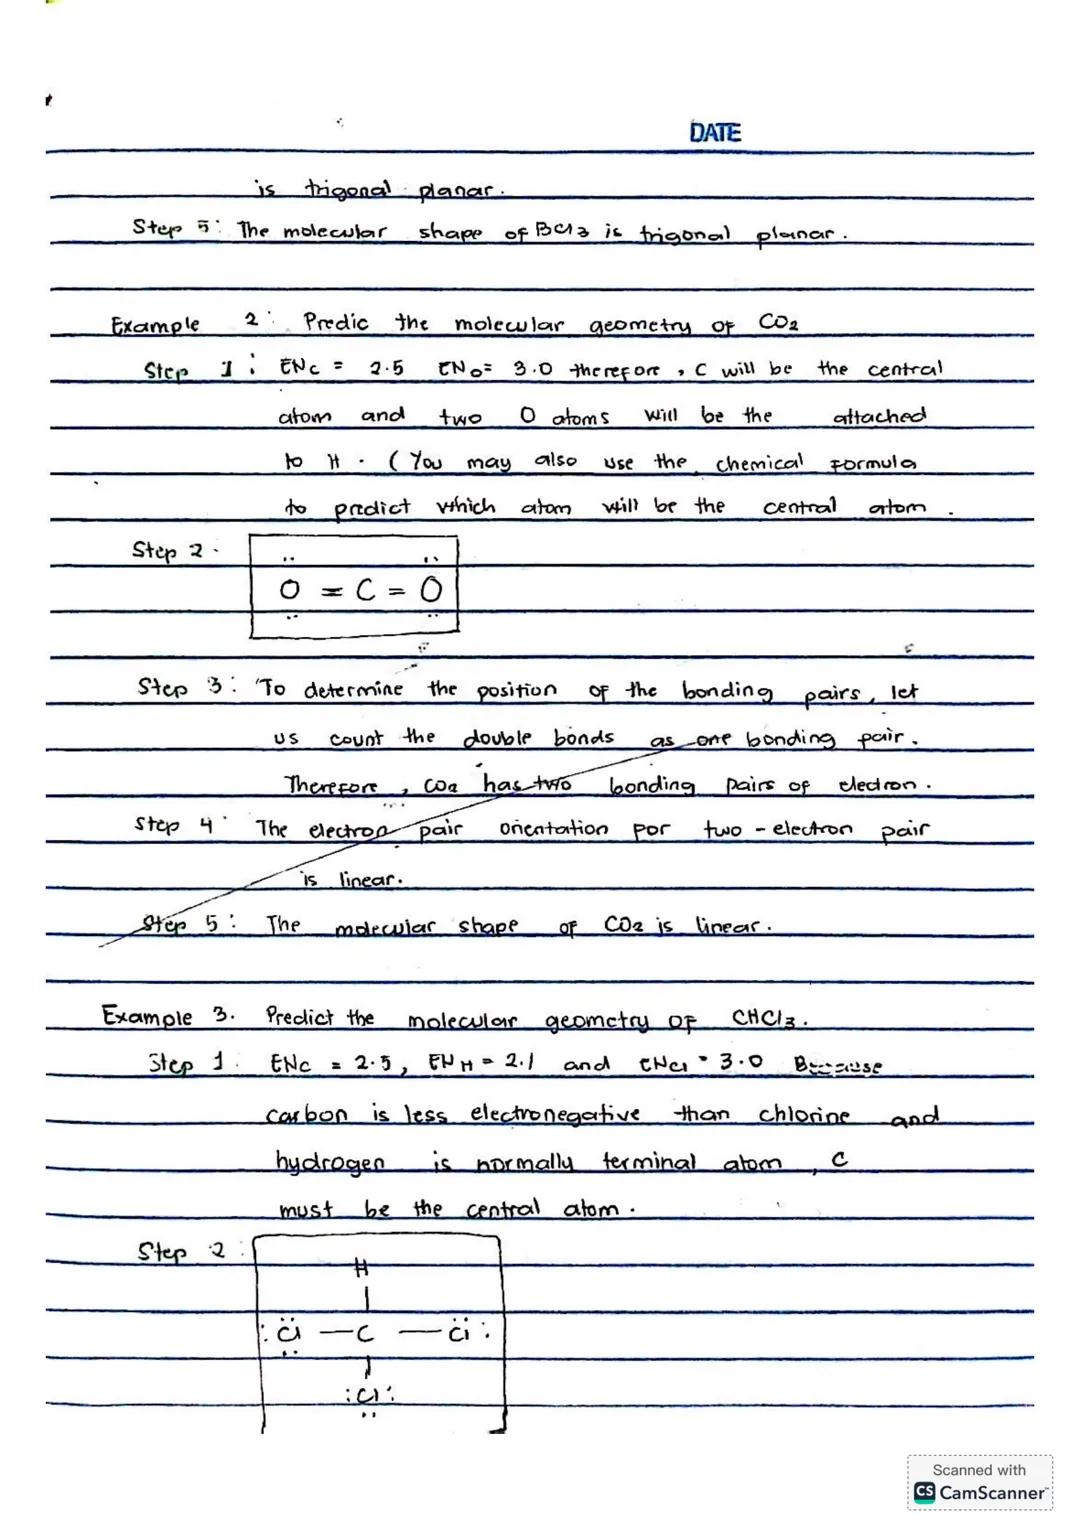 DATE
is trigonal planar.
Step 5: The molecular shape of BCl3 is trigonal planar.
Example 2: Predic the molecular geometry of CO2
Step 1: ENC = 2.5 ENO= 3.0 therefore, C will be the central
atom and two O atoms will be the attached
to H. (You may also use the chemical formula
to predict which atom will be the central atom.
Step 2.
O = C = O
Step 3: To determine the position of the bonding pairs, let
us count the double bonds as one bonding pair.
Therefore, CO2 has two bonding pairs of electron.
Step 4: The electron pair orientation for two-electron pair
is linear.
Step 5: The molecular shape of CO2 is linear.
Example 3. Predict the molecular geometry of CHCl3.
Step 1. ENC = 2.5, ENH = 2.1 and ENCl = 3.0 Because
carbon is less electronegative than chlorine and
hydrogen is normally terminal atom, C
must be the central atom.
Step 2:
H
:Cl — C — Cl:
:Cl:
Scanned with
CS CamScanner